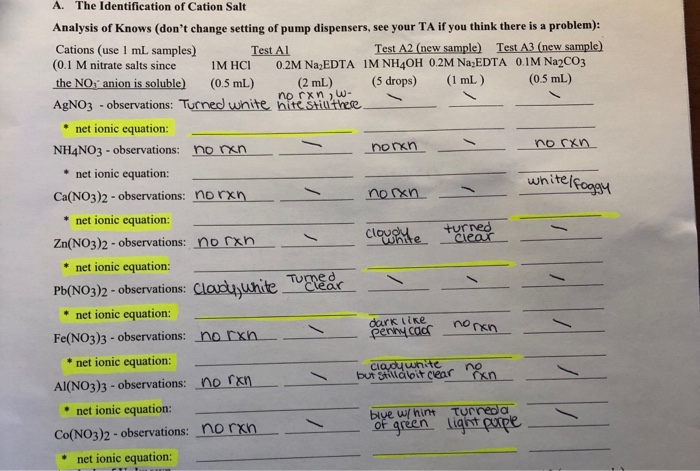 A. The Identification of Cation Salt
Analysis of Knows (don't change setting of pump dispensers, see your TA if you think there is a problem):
Cations (use 1 mL samples) Test A1 Test A2 (new sample) Test A3 (new sample)
(0.1 M nitrate salts since 1M HCl 0.2M Na2EDTA 1M NH4OH 0.2M Na2EDTA 0.1M Na2CO3
the NO3- anion is soluble) (0.5 mL) (2 mL) (5 drops) (1 mL) (0.5 mL)
no rxn, w-
AgNO3 - observations: Turned white hite still there \ \ \
* net ionic equation:
NH4NO3 - observations: no rxn \ no rxn \ no rxn
* net ionic equation:
white/foggy
Ca(NO3)2 - observations: no rxn \ no rxn \
* net ionic equation:
cloudy turned
Zn(NO3)2 - observations: no rxn \ white clear \
* net ionic equation:
Turned
Pb(NO3)2 - observations: cloudy, white clear \ \ \
* net ionic equation:
dark like
Fe(NO3)3 - observations: no rxn \ penny color no rxn \
* net ionic equation:
cloudy white no
Al(NO3)3 - observations: no rxn \ but still a bit clear rxn \
* net ionic equation:
blue w/ hint Turned a
Co(NO3)2 - observations: no rxn \ of green light purple \
* net ionic equation: